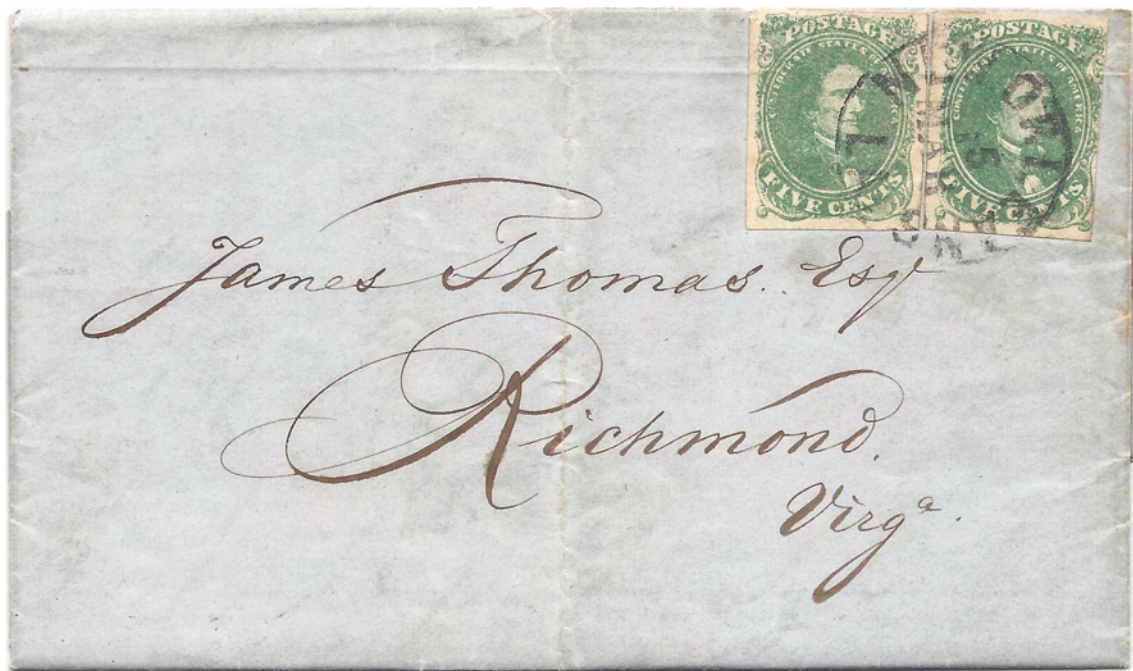 POSTAGE
CONFEDERATE STATES OF AMERICA
FIVE CENTS
POSTAGE
CONFEDERATE STATES OF AMERICA
FIVE CENTS
MAR
15
James Thomas. Esqr
Richmond.
Virgᵃ.